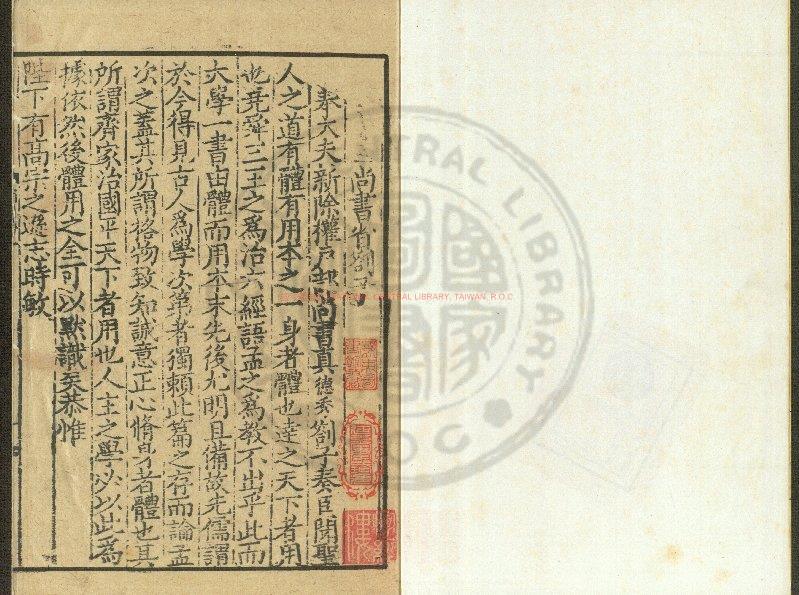 尚書省劄子
奉大夫新除權戶部尚書真德秀劄子奏臣聞聖
人之道有體有用本之一身者體也達之天下者用
也堯舜三王之為治六經語孟之為教不出乎此而
大學一書由體而用本末先後尤明且備故先儒謂
於今得見古人為學次第者獨賴此篇之存而論孟
次之蓋其所謂格物致知誠意正心脩身者體也其
所謂齊家治國平天下者用也人主之學必以此為
據依然後體用之全可以默識矣恭惟
陛下有高宗之遜志時敏
CENTRAL LIBRARY, TAIWAN, R.O.C
CENTRAL LIBRARY
R.O.C
國家圖書